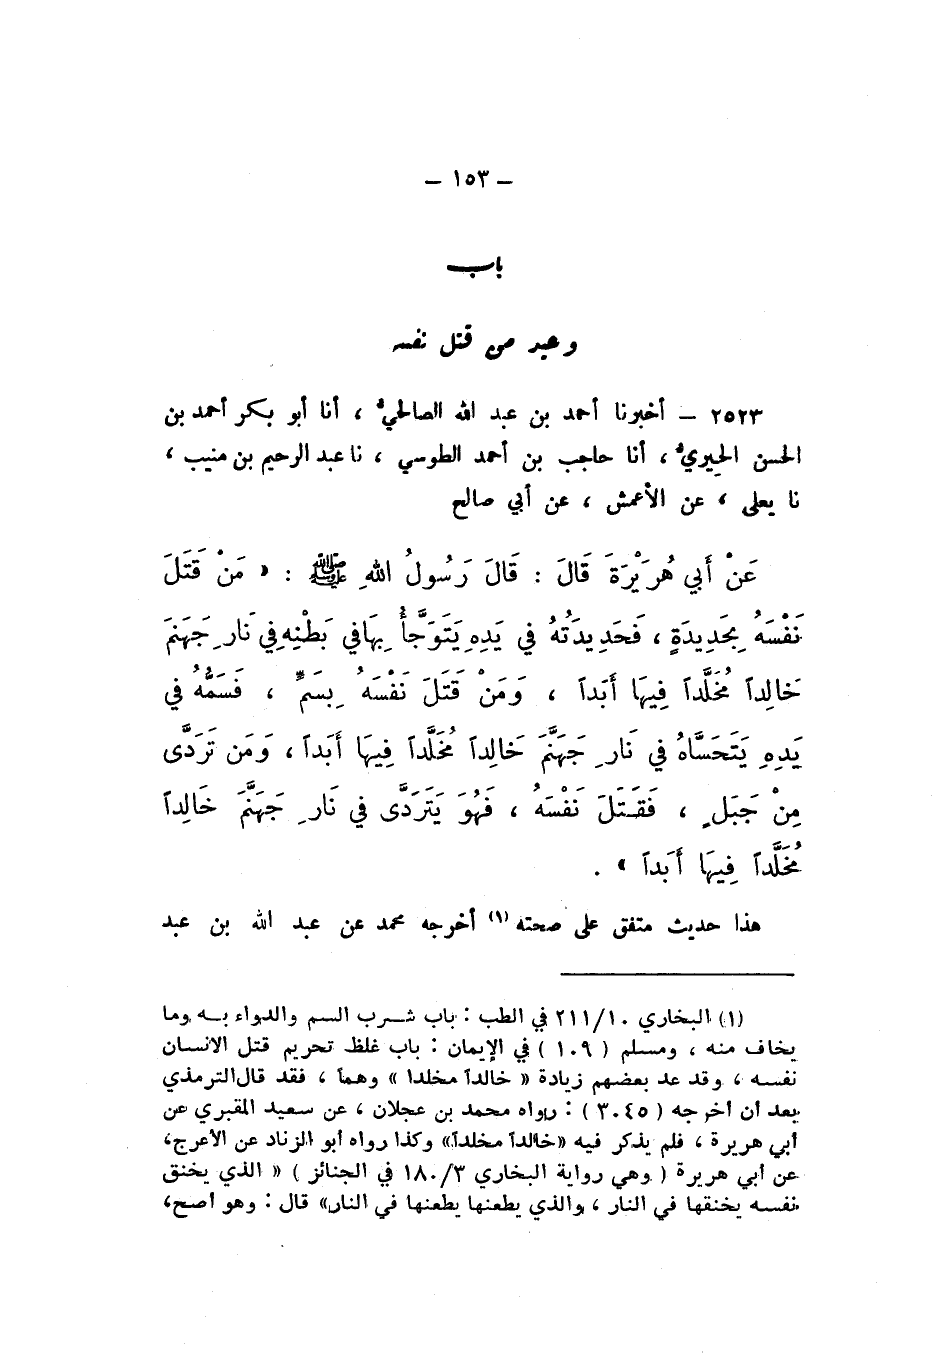 – ١٥٣ –
باب
وعيد من قتل نفسه
٢٥٢٣ – أخبرنا أحمد بن عبد الله الصالحيُّ ، أنا أبو بكر أحمد بن
الحسن الحيريُّ ، أنا حاجب بن أحمد الطوسي ، نا عبد الرحيم بن منيب ،
نا يعلى ، عن الأعمش ، عن أبي صالح
عَنْ أَبي هُرَيْرَةَ قَالَ : قَالَ رَسُولُ اللهِ ﷺ : « مَنْ قَتَلَ
نَفْسَهُ بِحَدِيدَةٍ ، فَحَدِيدَتُهُ في يَدِهِ يَتَوَجَّأُ بِهَا في بَطْنِهِ في نَارِ جَهَنَّمَ
خَالِداً مُخَلَّداً فِيهَا أَبَداً ، وَمَنْ قَتَلَ نَفْسَهُ بِسَمٍّ ، فَسَمُّهُ في
يَدِهِ يَتَحَسَّاهُ في نَارِ جَهَنَّمَ خَالِداً مُخَلَّداً فِيهَا أَبَداً ، وَمَن تَرَدَّى
مِنْ جَبَلٍ ، فَقَتَلَ نَفْسَهُ ، فَهُوَ يَتَرَدَّى في نَارِ جَهَنَّمَ خَالِداً
مُخَلَّداً فِيهَا أَبَداً » .
هذا حديث متفق على صحته (١) أخرجه محمد عن عبد الله بن عبد
(١) البخاري ٢١١/١٠ في الطب : باب شرب السم والدواء به وما
يخاف منه ، ومسلم ( ١٠٩ ) في الإيمان : باب غلظ تحريم قتل الانسان
نفسه ، وقد عد بعضهم زيادة « خالداً مخلداً » وهماً ، فقد قال الترمذي
بعد أن أخرجه ( ٣٠٤٥ ) : رواه محمد بن عجلان ، عن سعيد المقبري عن
أبي هريرة ، فلم يذكر فيه «خالداً مخلداً» وكذا رواه أبو الزناد عن الأعرج،
عن أبي هريرة ( وهي رواية البخاري ١٨٠/٣ في الجنائز ) « الذي يخنق
نفسه يخنقها في النار ، والذي يطعنها يطعنها في النار» قال : وهو أصح،